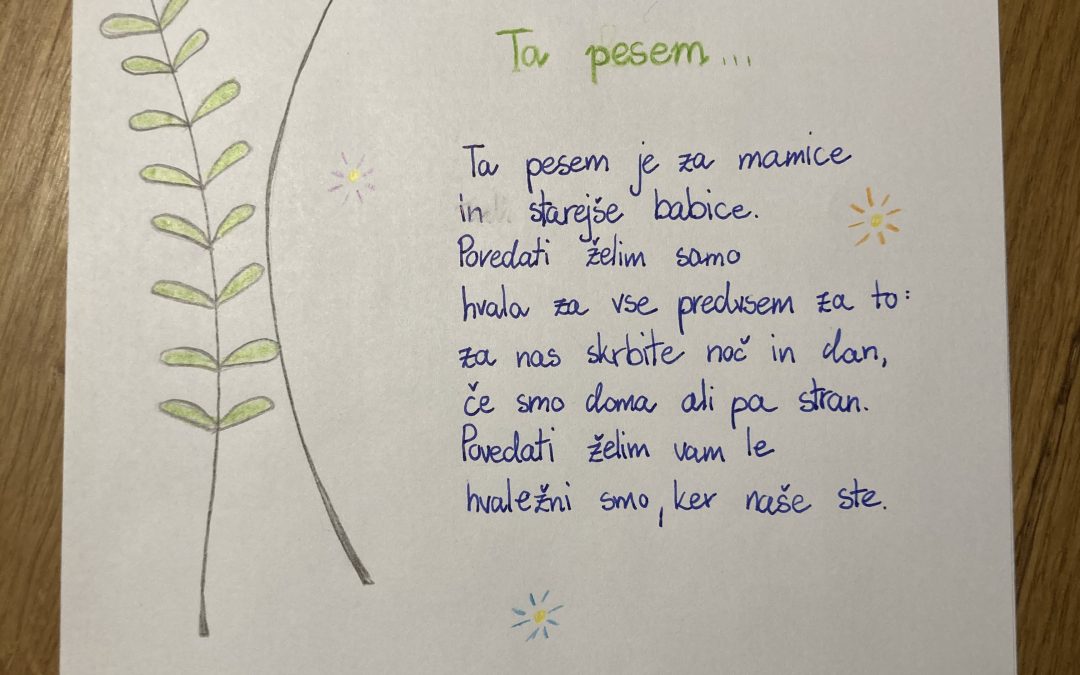 Ta pesem...
Ta pesem je za mamice
in starejše babice.
Povedati želim samo
hvala za vse predvsem za to:
za nas skrbite noč in dan,
če smo doma ali pa stran.
Povedati želim vam le
hvaležni smo, ker naše ste.